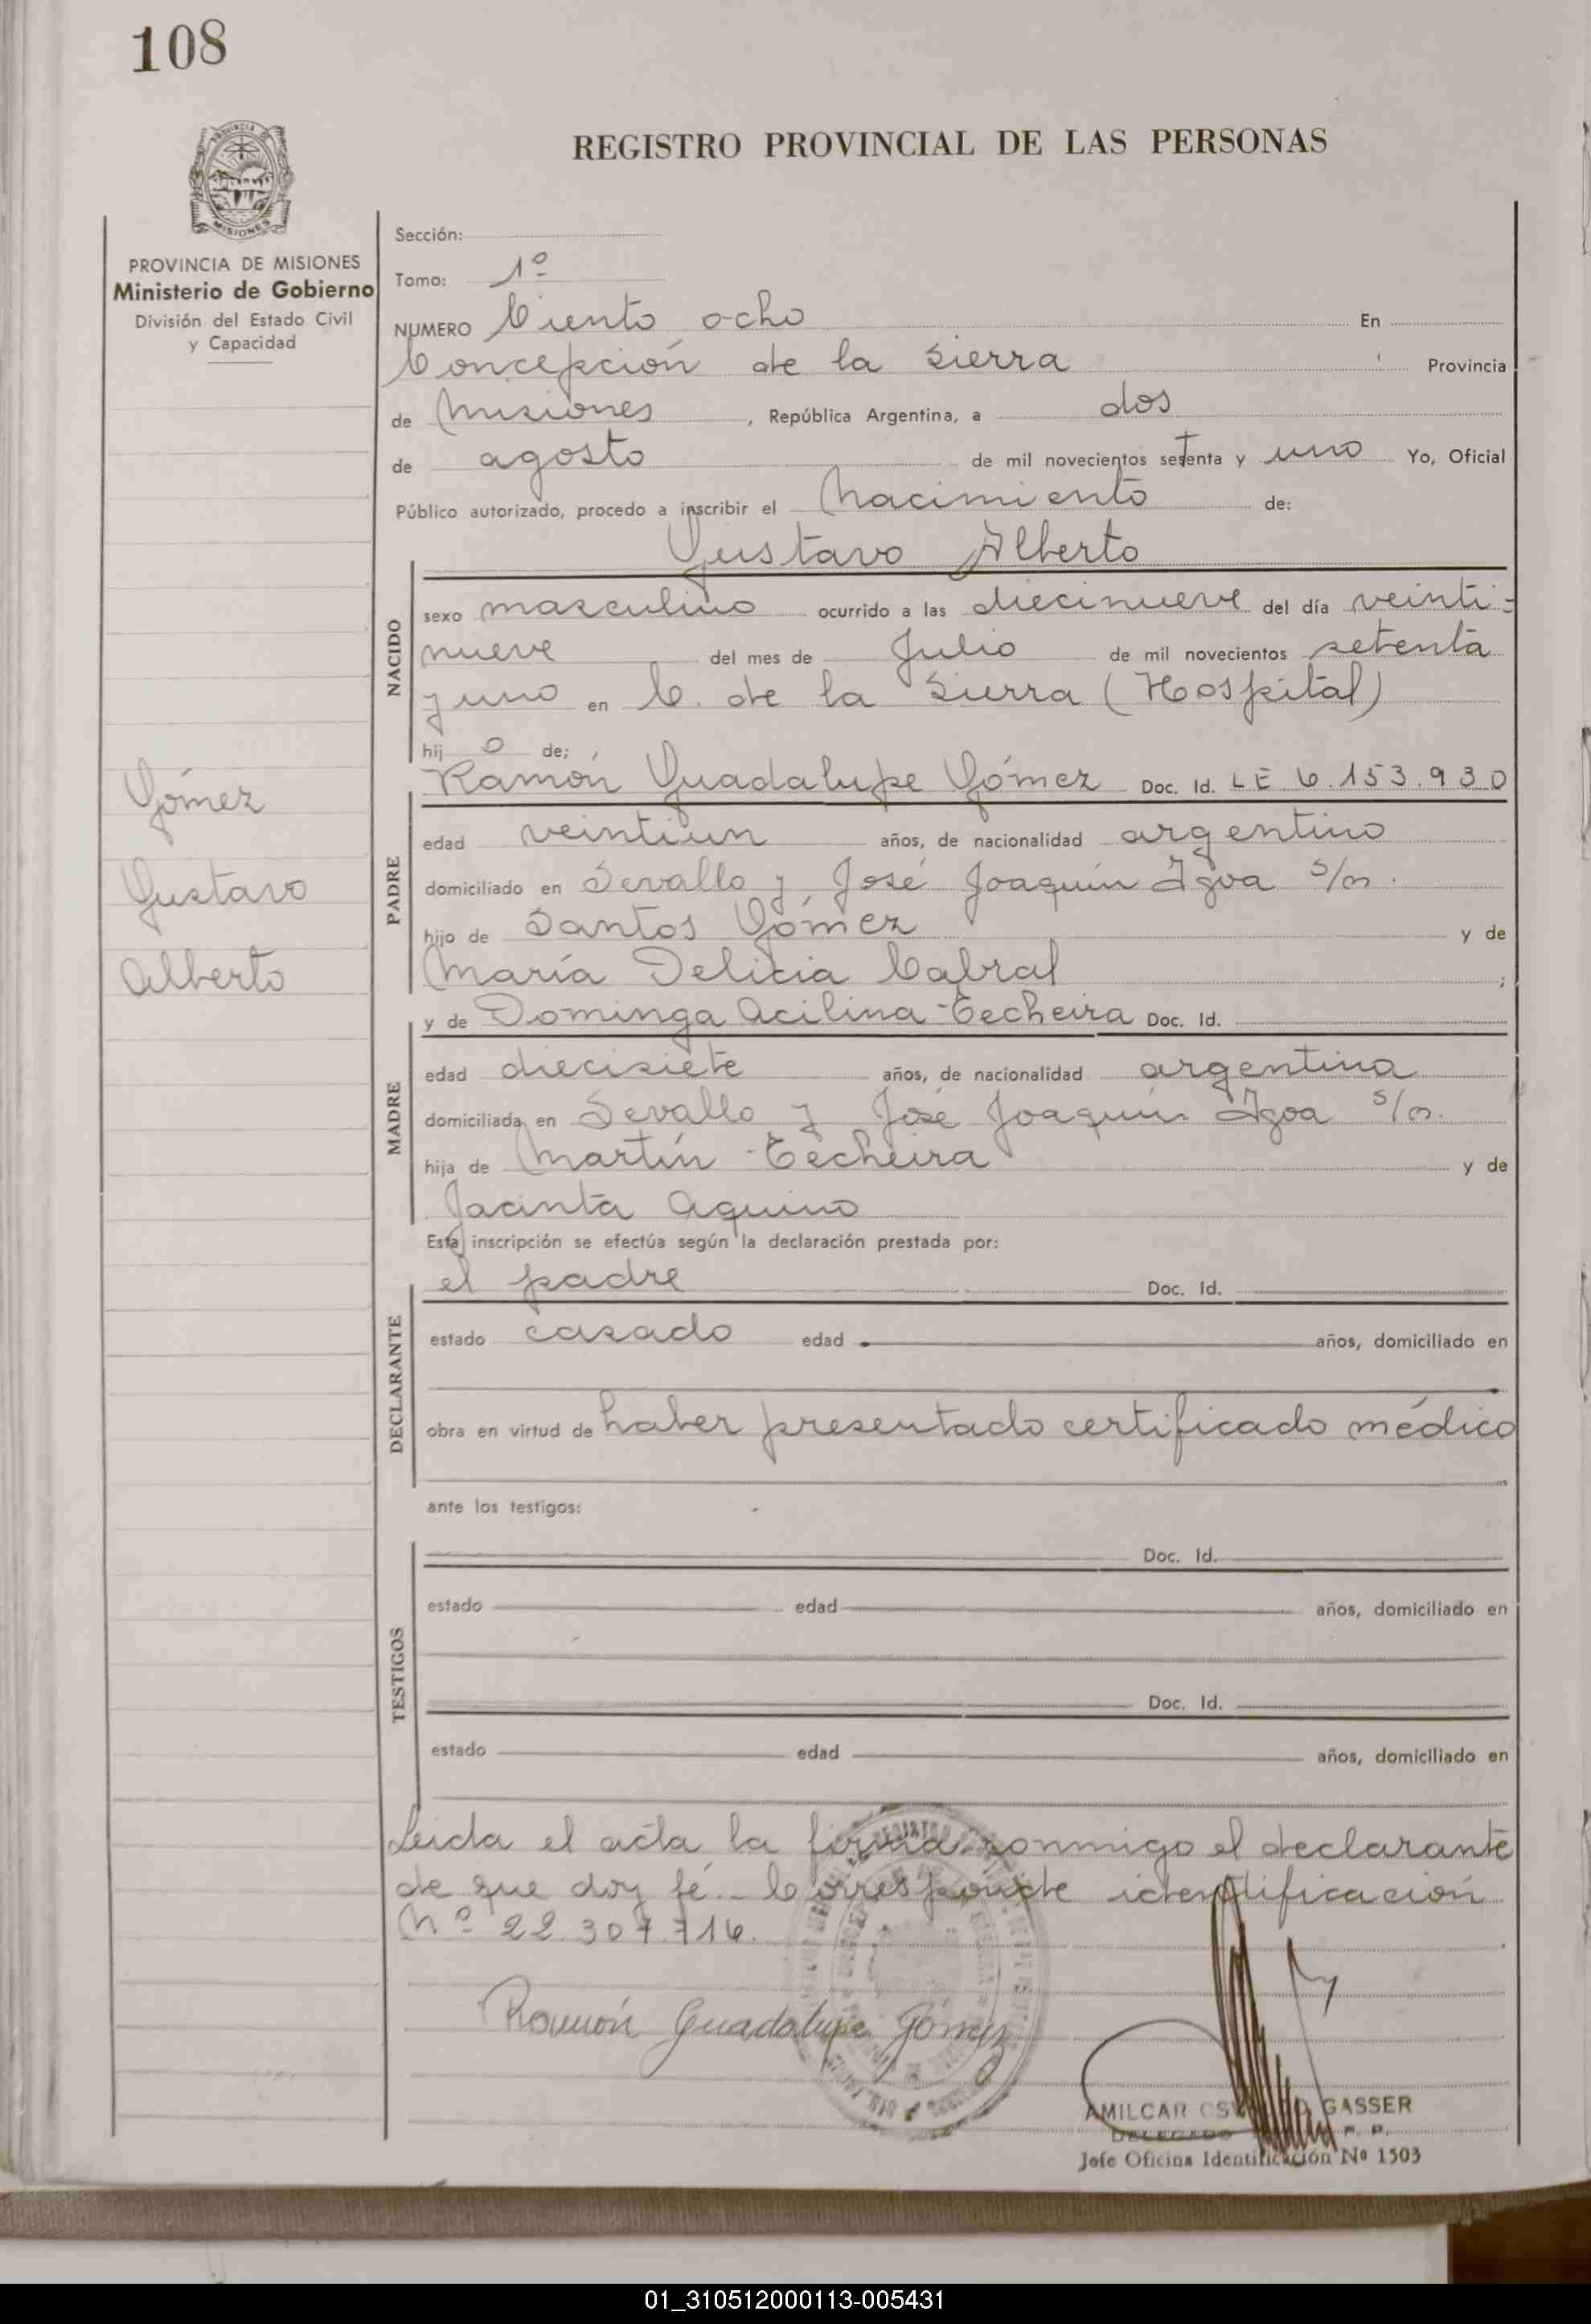 108
REGISTRO PROVINCIAL DE LAS PERSONAS
PROVINCIA DE MISIONES
Ministerio de Gobierno
División del Estado Civil
y Capacidad
Gómez
Gustavo
Alberto
Sección:
Tomo: 1º
NUMERO Ciento ocho En
Concepción de la Sierra Provincia
de Misiones, República Argentina, a dos
de agosto de mil novecientos setenta y uno Yo, Oficial
Público autorizado, procedo a inscribir el Nacimiento de:
Gustavo Alberto
NACIDO
sexo masculino ocurrido a las diecinueve del día veinti-
nueve del mes de Julio de mil novecientos setenta
y uno en C. de la Sierra (Hospital)
hijo de;
Ramón Guadalupe Gómez Doc. Id. LE 6.153.930
PADRE
edad veintiun años, de nacionalidad argentino
domiciliado en Sevallo y José Joaquín s/n.
hijo de Santos Gómez y de
María Delicia Cabral ;
y de Dominga Acilina Techeira Doc. Id.
MADRE
edad diecisiete años, de nacionalidad argentina
domiciliada en Sevallo y José Joaquín s/n.
hija de Martín Techeira y de
Jacinta Aquino
Esta inscripción se efectúa según la declaración prestada por:
el padre Doc. Id.
DECLARANTE
estado casado edad años, domiciliado en
obra en virtud de haber presentado certificado médico
ante los testigos:
TESTIGOS
Doc. Id.
estado edad años, domiciliado en
Doc. Id.
estado edad años, domiciliado en
Leida el acta la firma conmigo el declarante
de que doy fé.- Corresponde identificación
Nº 22.307.716.
Ramón Guadalupe Gómez
AMILCAR GASSER
DELEGADO R. P. P.
Jefe Oficina Identificación Nº 1503
01_310512000113-005431